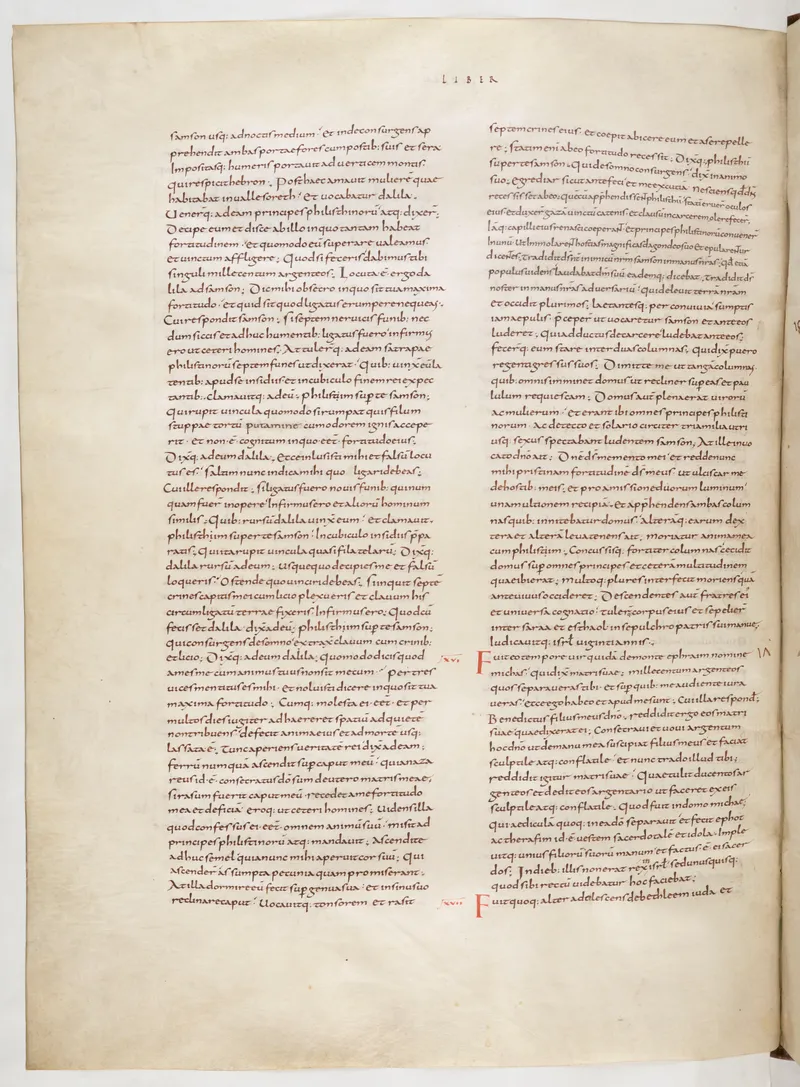 LIBER
samson usq: ad noctis medium · et inde consurgens ap
prehendit ambas portae fores cum postib: suis et sera
Impositasq: humeris portauit ad uerticem montis
qui respicit hebron ; Post haec amauit mulierē quae
habitabat in ualle soreth · et uocabatur dalila ;
Uenerq: ad eam principes philisthinorū atq: dixer̄ ;
Decipe eum et disce ab illo in quo tantam habeat
fortitudinem · et quomodo eū superare ualeamus
et uinctum affligere ; Quod si feceris dabimus tibi
singuli mille centum argenteos ; Locuta ē ergo da
lila ad samson ; Dic mihi obsecro in quo sit tua maxima
fortitudo · et quid sit quo ligatus erumpere nequeas ;
Cui respondit samson ; si septem neruicis funib: nec
dum siccis et adhuc humentib: ligatus fuero infirmus
ero ut ceteri homines ; Attulerq: ad eam satrapae
philistinorū septem funes ut dixerat · Quib: uinxit eū la
tentib: apud se insidiis et in cubiculo finem rei expec
tantib: clamauitq: ad eū ; philistiim sup te samson ;
Qui rupit uincula quomodo si rumpat quis filum
stuppae tortū putamine cum odorem ignis accepe
rit · et non ē cognitum in quo eet fortitudo eius ;
Dixq: ad eum dalila ; Ecce inlusisti mihi et falsū locu
tus es · saltim nunc indica mihi quo ligari debeas ;
Cui ille respondit ; si ligatus fuero nouis funib: qui num
quam fuer in opere Infirmus ero et aliorū hominum
similis ; Quib: rursū dalila uinx eum · et clamauit ·
philisthiim super te samson · In cubiculo insidiis ppa
ratis ; Qui ita rupit uincula quasi fila telarū ; Dixq:
dalila rursū ad eum ; usquequo decipies me et falsū
loqueris · Ostende quo uinciri debeas ; si inquit septē
crines capitis mei cum licio plexueris et clauum his
circumligatū terrae fixeris Infirmus ero ; Quod cū
fecisset dalila · dix ad eū ; philisthiim sup te samson ;
Qui consurgens de somno extrax clauum cum crinib:
et licio ; Dixq: ad eum dalila ; Quomodo dicis quod
ames me cum animus tuus non sit mecum · per tres
uices mentitus es mihi · et noluisti dicere in quo sit tua
maxima fortitudo ; Cumq: molesta ei eet · et per
multos dies iugiter adhaereret spatiū ad quietē
non tribuens · defecit anima eius et ad mortē usq:
lassata ē ; Tunc aperiens ueritatē rei dix ad eam ;
ferrū numquā ascendit sup caput meū · quia naza
reus id ē consecratus dō sum de utero matris meae ;
si rasum fuerit caput meū recedet a me fortitudo
mea et deficiā eroq: ut ceteri homines ; Uidens illa
quod confessus ei eet omnem animū suū · misit ad
principes philistinorū atq: mandauit ; Ascendite
adhuc semel quia nunc mihi aperuit cor suū ; Qui
ascender adsumpta pecunia quam promiserant ·
At illa dormire eū fecit sup genua sua · et in sinu suo
reclinare caput · Uocauitq: tonsorem et rasit
septem crines eius · et coepit abicere eum et a se repelle
re ; statim eni ab eo fortitudo recessit ; Dixq: philisthii
super te samson · Qui de somno consurgens · dix in animo
suo ; egrediar sicut ante feci et me excutia · nesciens qd dns
recessisset ab eo ;
eius et duxer gaza uinctū catenis et clausū in carcere molere fecer ;
Iāq: capilli eius renasci coeperant et principes philistinorū conuener
In unū ut Immolarent hostias magnificas dagon deo suo et epularentur
dicentes ; tradidit ds nr inimicū nrm samson in manus nras · qd etiā
populus uidens laudabat dm suū eademq: dicebat ; tradidit ds
noster in manus nras aduersariū · qui deleuit terrā nram
et occidit plurimos ; Laetantesq: per conuiuia sumptis
iam aepulis · pceper ut uocaretur samson et ante eos
luderet ; Qui adductus de carcere ludebat ante eos ;
fecerq: eum stare inter duas columnas ; Qui dix puero
regenti gressus suos ; Dimitte me ut tangā columnas
quib: omnis imminet domus ut recliner sup eas et pau
lulum requiescam ; Domus aut plena erat uirorū
ac mulierum · et erant ibi omnes principes philisti
norum · Ac de tecto et solario circiter tria milia utri
usq: sexus spectabant ludentem samson ; At ille inuo
cato dno ait ; Dne ds memento mei et redde nunc
mihi pristinam fortitudinē ds meus ut ulciscar me
de hostib: meis ; et pro amissione duorum luminum
unam ultionem recipiā ; et apphendens ambas colum
nas quib: innitebatur domus · Alterāq: earum dex
tera et alterā leua tenens ait ; moriatur anima mea
cum philisthiim ; Concussisq: fortiter columnas cecidit
domus sup omnes principes et ceterā multitudinem
quae ibi erat ; multoq: plures interfecit moriens quā
ante uiuus occiderat ; Descendentes aut fratres ei
et uniuersa cognatio · tuler corpus eius et sepelier
inter saraa et esthaol in sepulchro patris sui manue ;
Iudicauitq: isrl uiginti annis ;
xvi Fuit eo tempore uir quidā de monte ephraim nomine
michas · Qui dix matri suae ; mille centum argenteos
quos separaueras tibi · et sup quib: me audiente iura
ueras · ecce ego habeo et apud me sunt ; Cui illa respond ;
Benedictus filius meus dno ; reddidit ergo eos matri
suae quae dixerat ei ; Consecraui et uoui argentum
hoc dno ut de manu mea suscipiat filius meus et faciat
sculptile atq: conflatile · et nunc trado illud tibi ;
reddidit igitur matri suae ; Quae tulit ducentos ar
genteos et dedit eos argentario ut faceret ex eis
sculptile atq: conflatile ; Quod fuit in domo miche ;
Qui aediculā quoq: in ea dō separauit et fecit ephot
ac therafim id ē uestem sacerdotalē et idola · Imple
uitq: unius filiorū suorū manum et factus ē ei sacer
dos ; In dieb: illis non erat rex in isrl sed unusquisq:
quod sibi rectū uidebatur hoc faciebat ;
xvii Fuit quoq: alter adolescens de bethleem iuda et